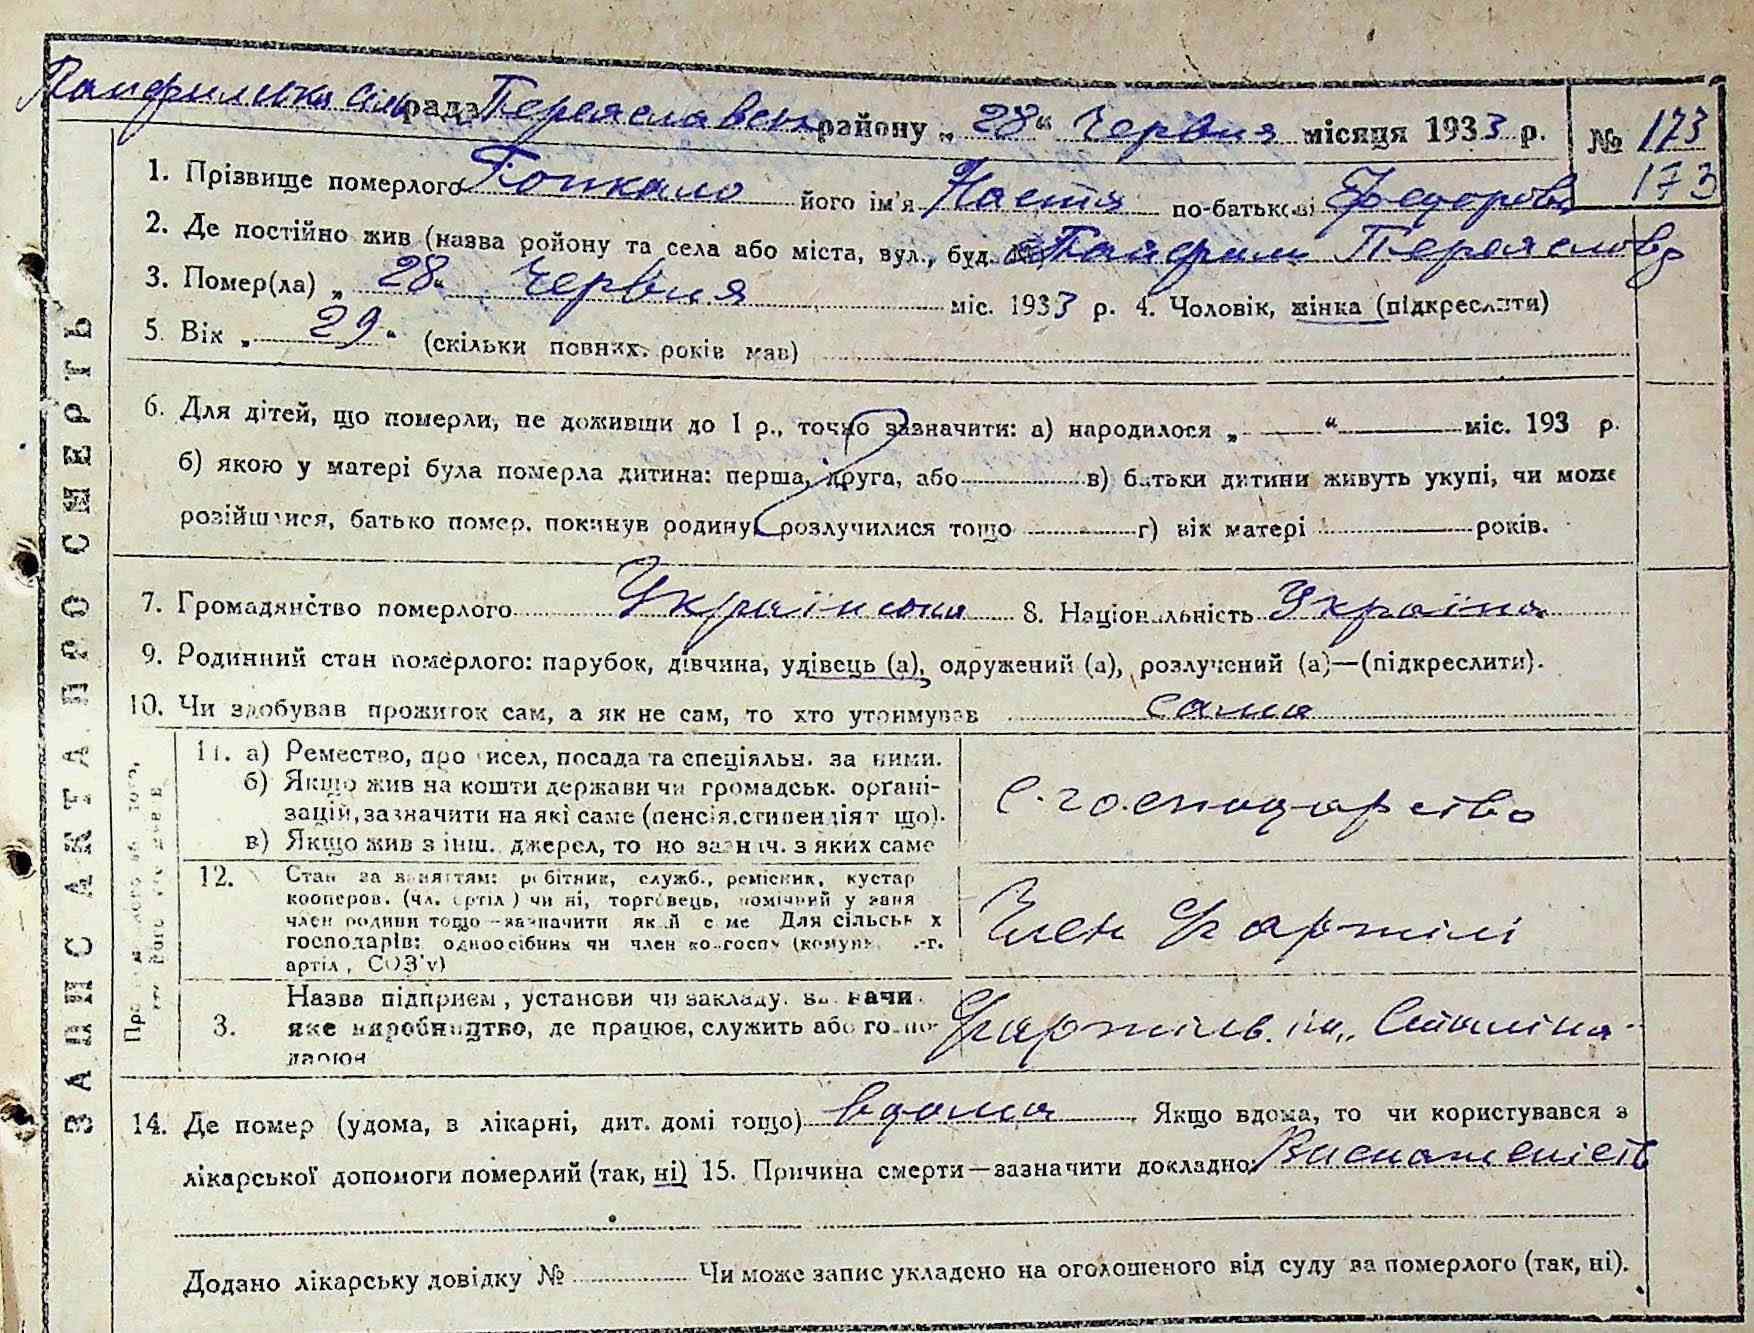 Панфилська сіль рада Переяславськ району „ 28 “ Червня місяця 1933 р. № 173
173
1. Прізвище померлого його ім'я Настя по-батькові Федорівн
2. Де постійно жив (назва ройону та села або міста, вул., буд. № Панфили Переяслов
3. Помер(ла) „ 28 “ Червня міс. 1933 р. 4. Чоловік, жінка (підкреслити)
5. Вік „ 29 “ (скільки повних. років мав)
6. Для дітей, що померли, не доживши до 1 р., точно зазначити: а) народилося „ “ міс. 193 р.
б) якою у матері була померла дитина: перша, друга, або в) батьки дитини живуть укупі, чи може
розійшлися, батько помер, покинув родину, розлучилися тощо г) вік матері років.
7. Громадянство померлого Українська 8. Національність Україна
9. Родинний стан померлого: парубок, дівчина, удівець (а), одружений (а), розлучений (а)—(підкреслити).
10. Чи здобував прожиток сам, а як не сам, то хто утримував сама
11. а) Ремество, промисел, посада та спеціяльн. за ними.
б) Якщо жив на кошти держави чи громадськ. орґані-
зацій, зазначити на які саме (пенсія, стипендіят що).
в) Якщо жив з інш. джерел, то но зазнач. з яких саме
С. господарство
12. Стан за заняттям: робітник, служб., ремісник, кустар
кооперов. (чл. артіл) чи ні, торговець, помічний у заня
член родини тощо—зазначити який саме Для сільськ х
господарів: одноосібник чи член колгоспу (комуни, с.-г.
артіл, СОЗ'у)
Член артілі
3. Назва підприєм, установи чи закладу, зазначи
яке виробництво, де працює, служить або госпо-
дарює
ім„ Сталіна
ЗАПИС АКТА ПРО СМЕРТЬ
14. Де помер (удома, в лікарні, дит. домі тощо) вдома. Якщо вдома, то чи користувався з
лікарської допомоги померлий (так, ні) 15. Причина смерти—зазначити докладно: Виснаженість
Додано лікарську довідку № Чи може запис укладено на оголошеного від суду за померлого (так, ні).